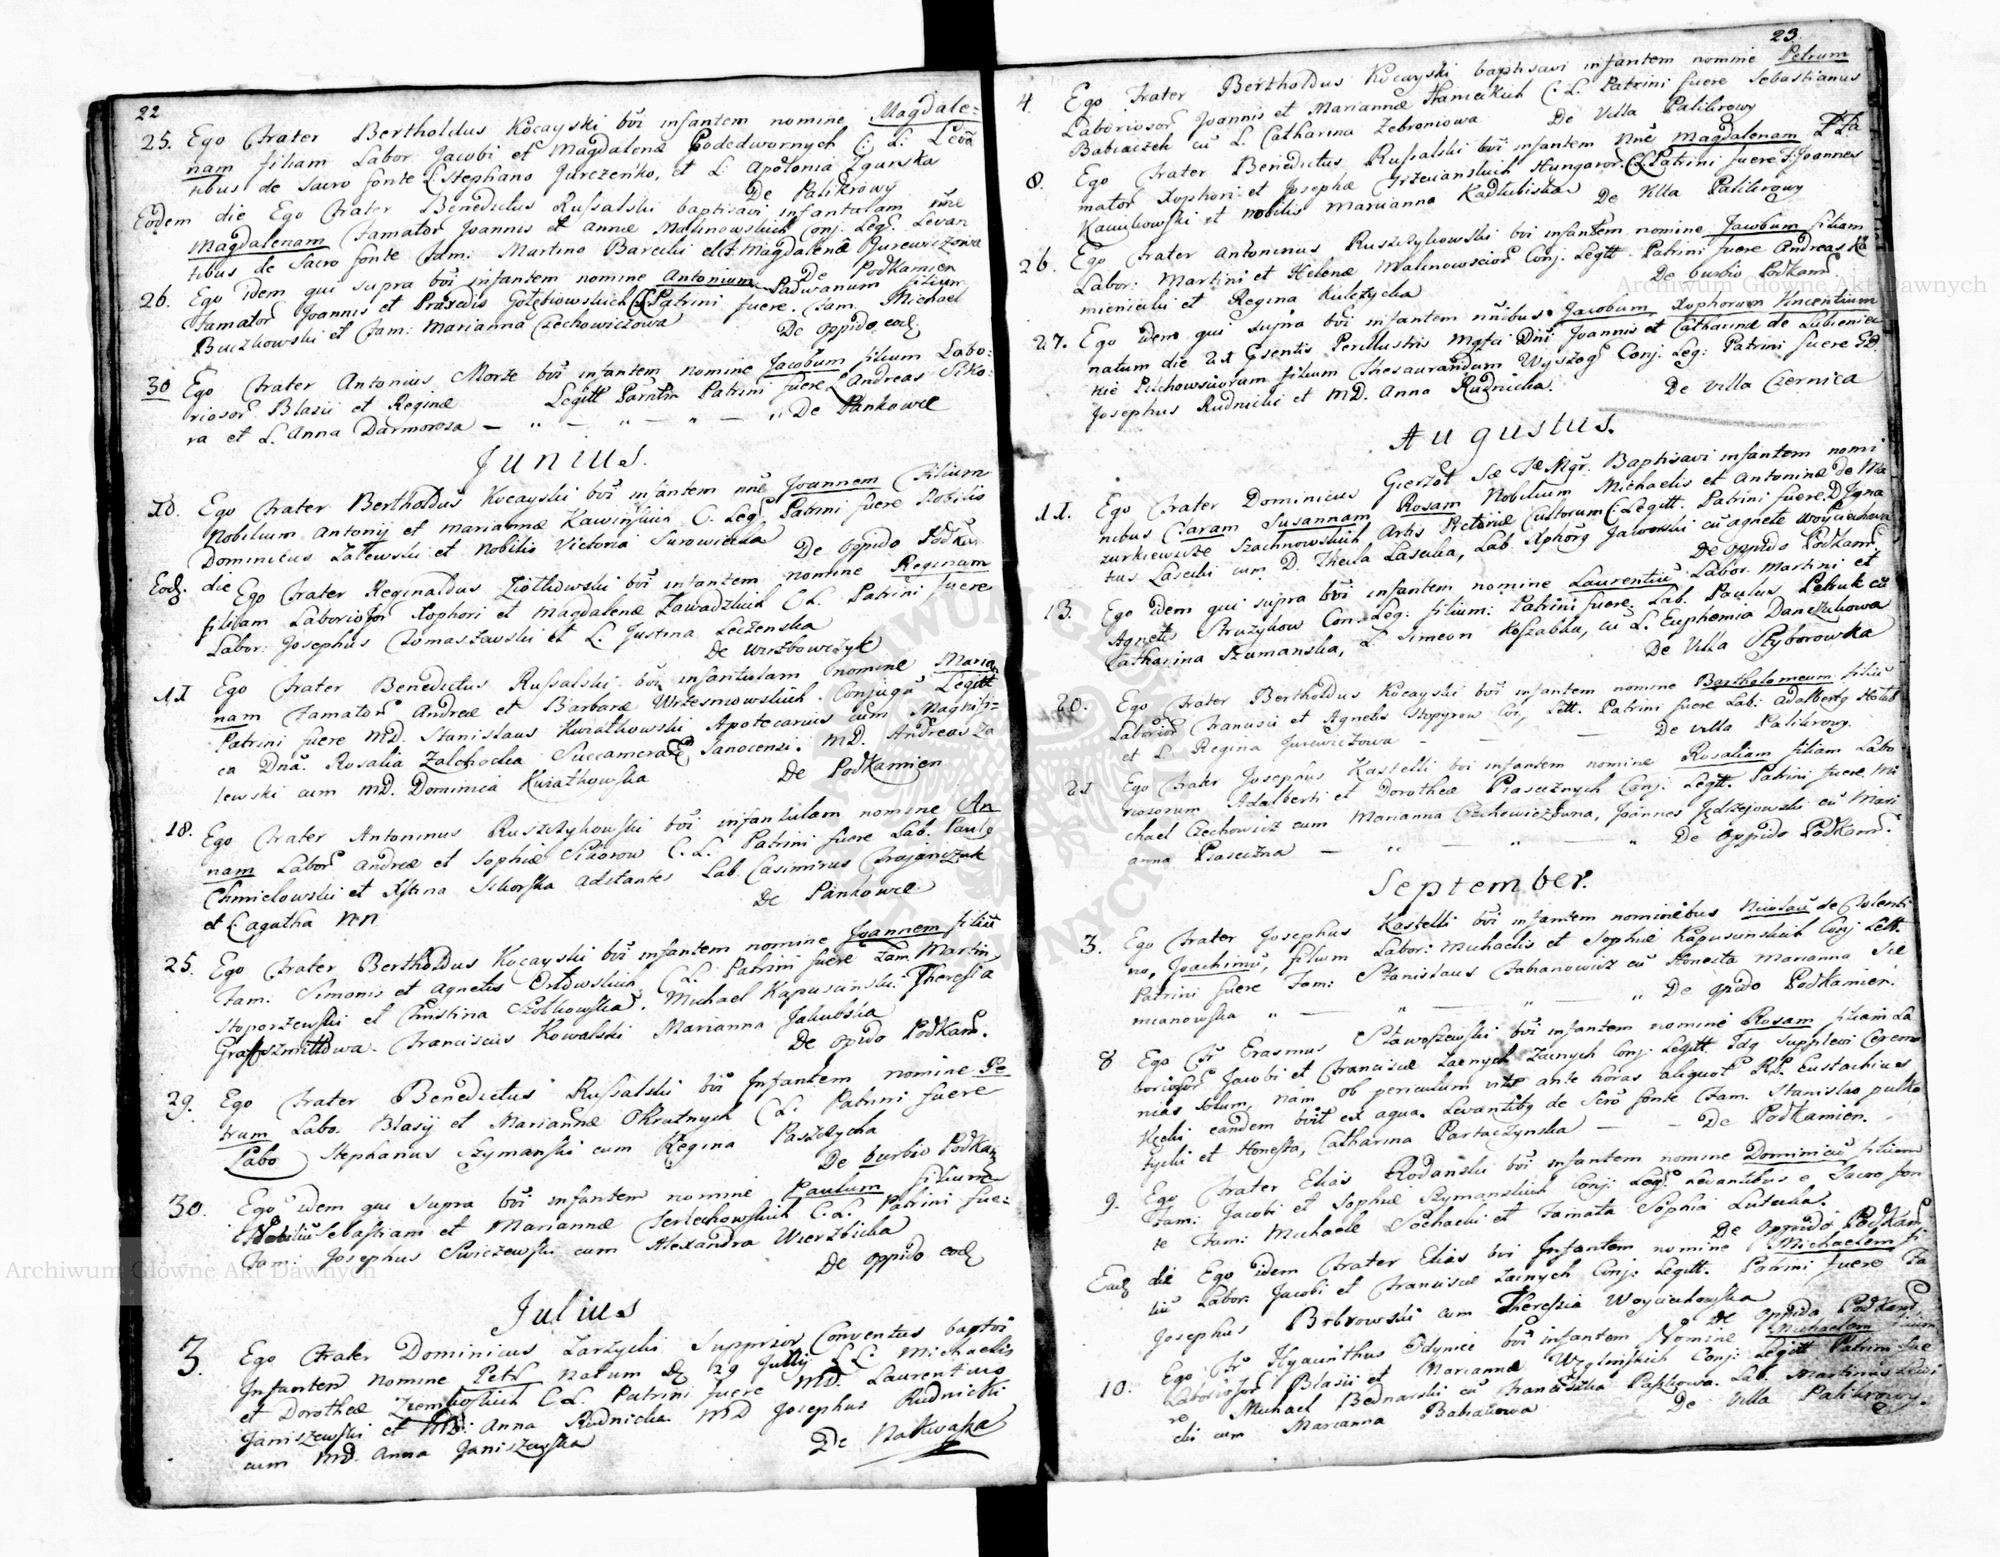 22
25. Ego Frater Bertholdus Kocayski bŭi infantem nomine Magdale=
nam filiam Labor. Jacobi et Magdalenæ Podedwornych C: L: Leva
tibus de Sacro fonte L Stephano Jurczenko, et L: Apolonia Zgurska
De Palikrowy
Eodem die Ego Frater Benedictus Russalski baptisavi infantulam nne
Magdalenam Famator Joannis et Annæ Malinowskich Conj. Leg. Levan
tibus de Sacro fonte Fam: Martino Barcicki et Magdalenæ Jurewiczowa
De Podkamien
26. Ego idem qui supra bŭi infantem nomine Antonium Padwanum filium
Famator Joannis et Praxedis Gołębiowskich CL Patrini fuere. Fam. Michael
Buczkowski et Fam: Marianna Czechowiczowa De oppido eod
30 Ego Frater Antonius Morze bŭi infantem nomine Jacobum filium Labo=
riosor Blasii et Reginæ Legitt Parntm Patrini fuere L Andreas Siko=
ra et L. Anna Darmorosa — " — " — " — " De Pankowce
Junius.
10. Ego Frater Bertholdus Kocayski bŭi infantem nne Joannem Filium
Nobilium Antonij et Mariannæ Kawińskich C. Leg. Patrini fuere Nobilis
Dominicus Zalewski et Nobilis Victoria Surowiecka De Oppido Podkam
Eod. die Ego Frater Reginaldus Ziółkowski bŭi infantem nomine Reginam
filiam Laboriosor Xophori et Magdalenæ Zawadzkich CL. Patrini fuere
Labor: Josephus Tomaszewski et L. Justina Leczenska
De Wierzbowczyk
11 Ego Frater Benedictus Russalski bŭi infantulam nomine Maria
nam Famator Andreæ et Barbaræ Wrzesniowskich Conjugŭ Legitt
Patrini fuere MD. Stanislaus Kwiatkowski Apotecarius cum Magnifi=
ca Dnâ. Rosalia Zalchocka Succameraræ Sanocensi. MD. Andreas Za
lewski cum MD. Dominica Kwiatkowska De Podkamien
18. Ego Frater Antoninus Ruszczykowski bŭi infantulam nomine An
nam Labor Andreæ et Sophiæ Sidorow C. L. Patrini fuere Lab. Paulo
Chmielowski et Xstina Sikorska Adstantes Lab. Casimirus Trojanczuk
et L. Agatha NN De Pankowce
25. Ego Frater Bertholdus Kocayski bŭi infantem nomine Joannem filiŭ
Fam: Simonis et Agnetis Ostowskich CL. Patrini fuere Fam. Martin
Stoporzewski et Christina Szolkowska. Michael Kapuscinski. Theresia
Graffszmittowa. Franciscus Kowalski Marianna Jakubska
De opido Podkam.
29. Ego Frater Benedictus Russalski bŭi Infantem nomine Pe
trum Labo. Blasij et Mariannæ Okrutnych CL. Patrini fuere
Labo Stephanus Szymanski cum Regina Paszczycha
De burbio Podkam
30. Ego idem qui supra bŭi infantem nomine Paulum filium
Nobiliŭ Sebastiani et Mariannæ Terlechowskich C.L. Patrini fue=
Fam: Josephus Swiczewski cum Alexandra Wierzbicka
De oppido eod
Julius
3 Ego Frater Dominicus Zarzycki Supprior Conventus baptvi
Infantem nomine Petr natum d 29 Junij LL. Michaelis
et Dorotheæ Ziembskich C.L. Patrini fuere MD. Laurentius
Janiszewski et MD: Anna Rudnicka MD Josephus Rudnicki
cum MD. Anna Janiszewska De Nakwasza
23.
4 Ego Frater Bertholdus Kocayski baptisavi infantem nomine Petrum
Laboriosor Joannis et Mariannæ Hanickich C: L. Patrini fuere Sebastianus
Babiaczek cŭ L. Catharina Zebroniowa De Villa Palikrowy
8. Ego Frater Benedictus Russalski bŭi infantem nne Magdalenam Fa
mator Xophori et Josephæ Trzcianskich Hungaror. CL Patrini fuere F. Joannes
Kamikowski et nobilis Marianna Kadlubiska De Villa Palikrowy
26. Ego Frater Antoninus Ruszczykowski bŭi infantem nomine Jacobum filium
Labor: Martini et Helenæ Malinowscior Conj. Legitt. Patrini fuere Andreas Ka
mieniecki et Regina Kuletycka De burbio Podkam.
27. Ego idem qui supra bŭi infantem nnibus Jacobum Xophorum Vincentium
natum die 21 Psentis Perillustris Mgfci Dni Joannis et Catharinæ de Lubienie
kie Pelchowsciorum filium Thesaurandum Wyszog. Conj. Leg: Patrini fuere MD
Josephus Rudnicki et MD. Anna Rudnicka. De Villa Czernica
Augustus.
11. Ego Frater Dominicus Gierzot S. T. Mgr. Baptisavi infantem nomi
nibus Claram Susannam Rosam Nobilium Michaelis et Antoninæ de Ma
zurkiewicze Szachnowskich Artis Pictoriæ Cultorum C. Legitt. Patrini fuere D. Igna
tius Lasecki cum D. Thecla Lasecka, Lab. Xphorg Jaworski cŭ Agnete Woyciechowa
De oppido Podkam.
13. Ego idem qui supra bŭi infantem nomine Laurentiŭ Labor. Martini et
Agnetis Struzykow Con: Leg: filium: Patrini fuere. Lab. Paulus Petruk cŭ
Catharina Szumanska, L. Simeon Koszabka, cŭ L. Euphemia Danczukowa
De Villa Styborowka
20. Ego Frater Bertholdus Kocayski bŭi infantem nomine Bartholomeum filiŭ
Laborior Francisci et Agnetis Stopyrow Con, Lett. Patrini fuere Lab: Adalbertg Hołub
et L. Regina Jurewiczowa — — — — De villa Palikrowy.
21 Ego Frater Josephus Kastelli bvi infantem nomine Rosaliam filiam Labo
riosorum Adalberti et Dorotheæ Piaseznych Conj. Legitt. Patrini fuere Mi
chael Czechowicz cum Marianna Czechowiczowna, Joannes Jędrzejowski cŭ Mari
anna Piasecna — " — " — " De Oppido Podkam.
September.
3. Ego Frater Josephus Kastelli bŭi infantem nominibus Nicolaŭ de Tolenti
no, Joachimŭ, filium Labor: Michaelis et Sophiæ Kapuscinskich Conj Lett.
Patrini fuere Fam: Stanislaus Trabanowicz cŭ Honesta Marianna Sie
mianowska " — " — " De opido Podkamien.
8 Ego Fr Erasmus Stawoszewski bŭi infantem nomine Rosam filiam La
boriosor Jacobi et Franciscæ Zacnych Conj. Legitt. Idq Supplevi Ceremo
nias solum, nam ob periculum vitæ ante horas aliquot R.P. Eustachius
Kęcki eandem bvit ex aqua. Levantibg de Scro fonte Fam. Stanislao Pulko
tycki et Honesta, Catharina Partaczynska — — De Podkamien.
9. Ego Frater Elias Rodanski bŭi infantem nomine Dominicŭ filium
Fam: Jacobi et Sophiæ Szymanskich Conj: Leg. Levantibus e Sacro fon
te Fam: Michaele Sochacki et Famata Sophia Lutecka.
De Oppido Podkam
Eod die Ego idem Frater Elias bvi Infantem nomine Michaelem fi
liŭ Labor. Jacobi et Franciscæ Zacnych Conj: Legitt. Patrini fuere Fa
Josephus Bobrowski cum Theressia Woyciechowska
De Oppido Podkam.
10. Ego Fr Hyacinthus Odyniec bŭi infantem Nomine Michaelem filium
Laboriosor Blasii et Mariannæ Węglińskich Conj: Legitt Patrini fue
re Michael Bednarski cŭ Franciszka Paszkowa. Lab. Martinus
cki cum Marianna Bahanowa De Villa Palikrowy.
Archiwum Główne Akt Dawnych
Archiwum Główne Akt Dawnych